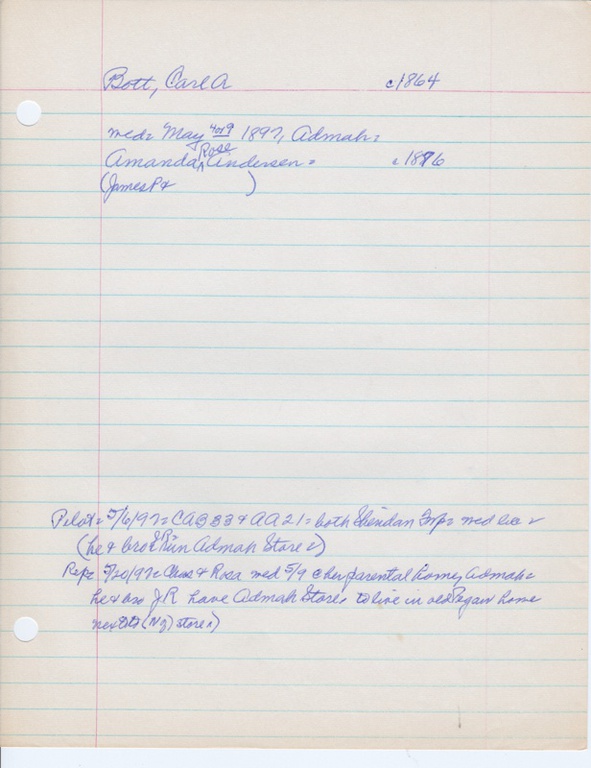 Bott, Carl A c1864
med= May 4or9 1897, Admah=
Amanda Rose Andersen= c1876
(James P & )
Pilot= 5/6/97= CAB 33 & AA 21= both Sheridan Twp= med lic=
(he & bro run Admah Store=)
Rep= 5/20/97= Chas & Rosa med 5/9 @ her parental home, Admah=
he & bro J R have Admah Store= to live in old home
next (N of) store=)